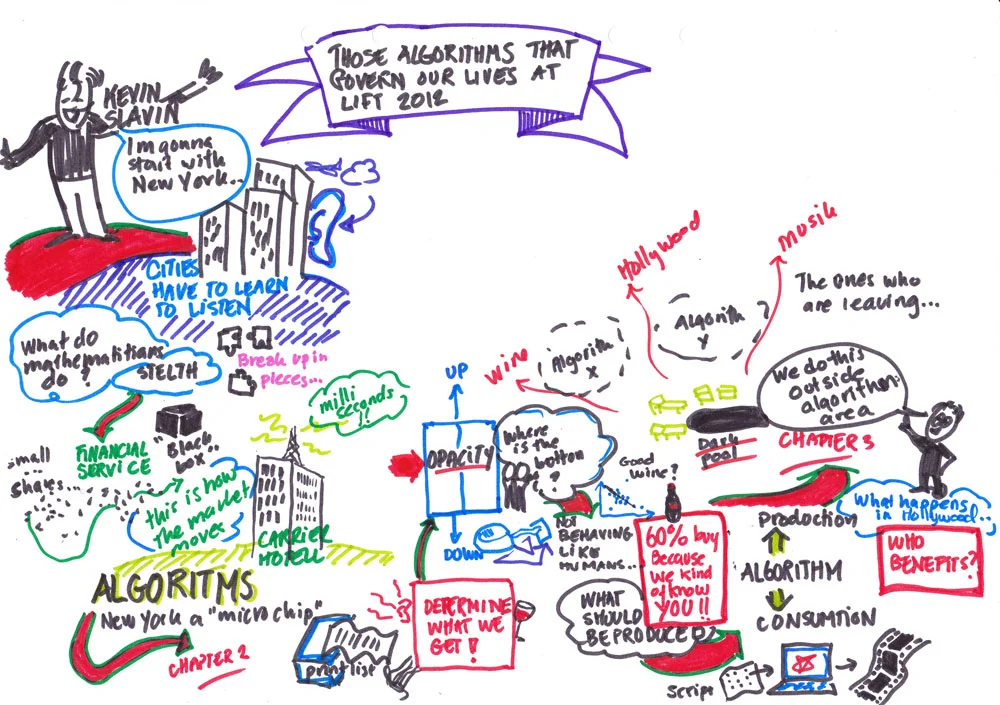 THOSE ALGORITHMS THAT
GOVERN OUR LIVES AT
LIFT 2012
KEVIN
SLAVIN
I'm gonna
start with
New York...
CITIES
HAVE TO LEARN
TO LISTEN
What do
mathematitians
do?
STELTH
Break up in
pieces...
milli
seconds
!!
FINANCIAL
SERVICE
"Black
box"
small
shares...
this is how
the market
moves
CARRIER
HOTELL
ALGORITMS
New York a "microchip"
CHAPTER 2
print list
DETERMINE
WHAT WE
GET!
UP
OPACITY
DOWN
Where
is the
botton
?
wine
Algorith
x
Hollywood
Algorith
y
Musik
The ones who
are leaving...
Good
wine?
NOT
BEHAVING
LIKE
HUMANS...
60% buy
Because
we kind
of know
YOU!!
WHAT
SHOULD
BE PRODUCED?
Dark
pool
We do this
outside
algorithm
area
CHAPTER 3
What happens
in Hollywood...
WHO
BENEFITS?
Production
ALGORITHM
CONSUMTION
script